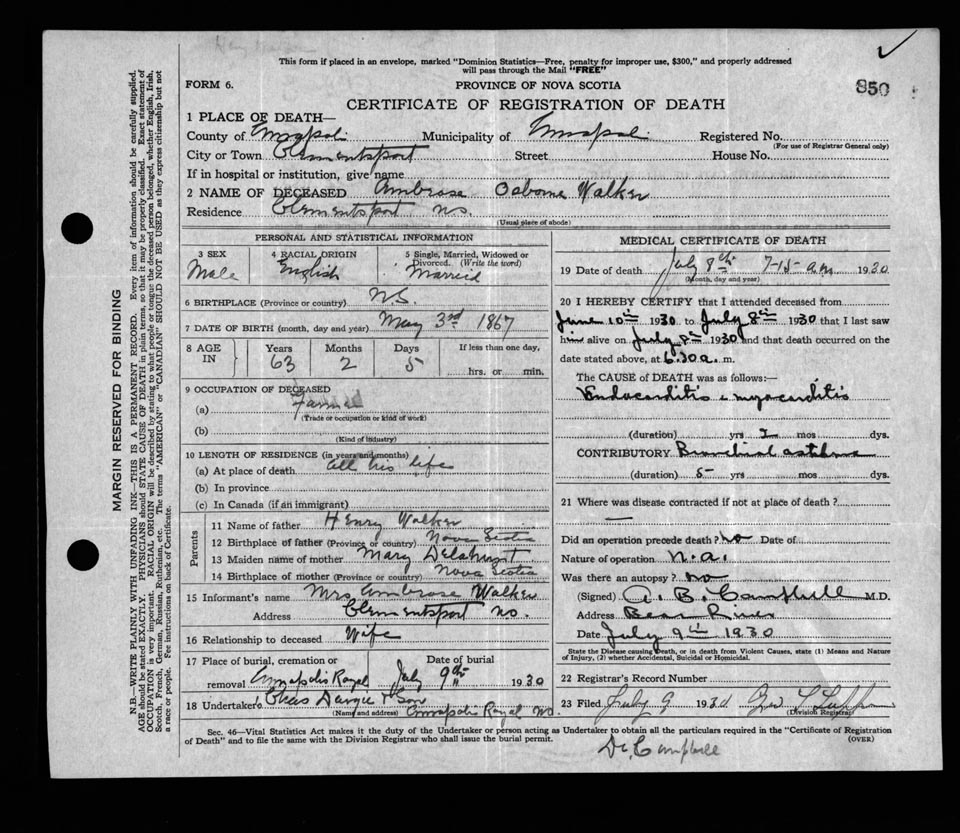 This form if placed in an envelope, marked "Dominion Statistics—Free, penalty for improper use, $300," and properly addressed
will pass through the Mail "FREE"
FORM 6.
PROVINCE OF NOVA SCOTIA
850
CERTIFICATE OF REGISTRATION OF DEATH
1 PLACE OF DEATH—
County of Municipality of Registered No.
(For use of Registrar General only)
City or Town Clementsport Street House No.
If in hospital or institution, give name
2 NAME OF DECEASED Ambrose Osborne Walker
Residence Clementsport N.S.
(Usual place of abode)
PERSONAL AND STATISTICAL INFORMATION
3 SEX 4 RACIAL ORIGIN 5 Single, Married, Widowed or
Divorced. (Write the word)
Male English Married
6 BIRTHPLACE (Province or country) N.S.
7 DATE OF BIRTH (month, day and year) May 3rd 1867
8 AGE IN Years Months Days If less than one day,
63 2 5 hrs. or min.
9 OCCUPATION OF DECEASED
(a)
(Trade or occupation or kind of work)
(b)
(Kind of industry)
10 LENGTH OF RESIDENCE (in years and months)
(a) At place of death all his life
(b) In province
(c) In Canada (if an immigrant)
Parents
11 Name of father Henry Walker
12 Birthplace of father (Province or country) Nova Scotia
13 Maiden name of mother Mary
14 Birthplace of mother (Province or country) Nova Scotia
15 Informant's name Mrs Ambrose Walker
Address Clementsport NS.
16 Relationship to deceased Wife
17 Place of burial, cremation or Date of burial
removal Annapolis Royal July 9th 1930
18 Undertaker Chas Dargie & Son
(Name and address) Annapolis Royal NS.
MEDICAL CERTIFICATE OF DEATH
19 Date of death July 8th 7-15 a.m. 1930
(Month, day and year)
20 I HEREBY CERTIFY that I attended deceased from
June 10th 1930 to July 8th 1930 that I last saw
him alive on July 8th 1930 and that death occurred on the
date stated above, at 6.30 a. m.
The CAUSE of DEATH was as follows:—
Endocarditis & myocarditis
(duration) yrs 2 mos dys.
CONTRIBUTORY Bronchial asthma
(duration) 5 yrs mos dys.
21 Where was disease contracted if not at place of death?
—
Did an operation precede death? no Date of
Nature of operation n.a.
Was there an autopsy? no
(Signed) A. B. Campbell M.D.
Address Bear River
Date July 9th 1930
State the Disease causing Death, or in death from Violent Causes, state (1) Means and Nature
of Injury, (2) whether Accidental, Suicidal or Homicidal.
22 Registrar's Record Number
23 Filed July 9 1930
(Division Registrar)
Sec. 46—Vital Statistics Act makes it the duty of the Undertaker or person acting as Undertaker to obtain all the particulars required in the "Certificate of Registration
of Death" and to file the same with the Division Registrar who shall issue the burial permit.
(OVER)
Dr Campbell
MARGIN RESERVED FOR BINDING
N.B.—WRITE PLAINLY WITH UNFADING INK—THIS IS A PERMANENT RECORD. Every item of information should be carefully supplied.
AGE should be stated EXACTLY. PHYSICIANS should STATE CAUSE OF DEATH in plain terms, so that it may be properly classified. Exact statement of
OCCUPATION is very important. RACIAL ORIGIN will be described by stating to what people or tongue the deceased person belonged, whether English, Irish,
Scotch, French, German, Russian, Ruthenian, etc. The terms "AMERICAN" or "CANADIAN" SHOULD NOT BE USED as they express citizenship but not
a race or people. Fee instructions on back of Certificate.